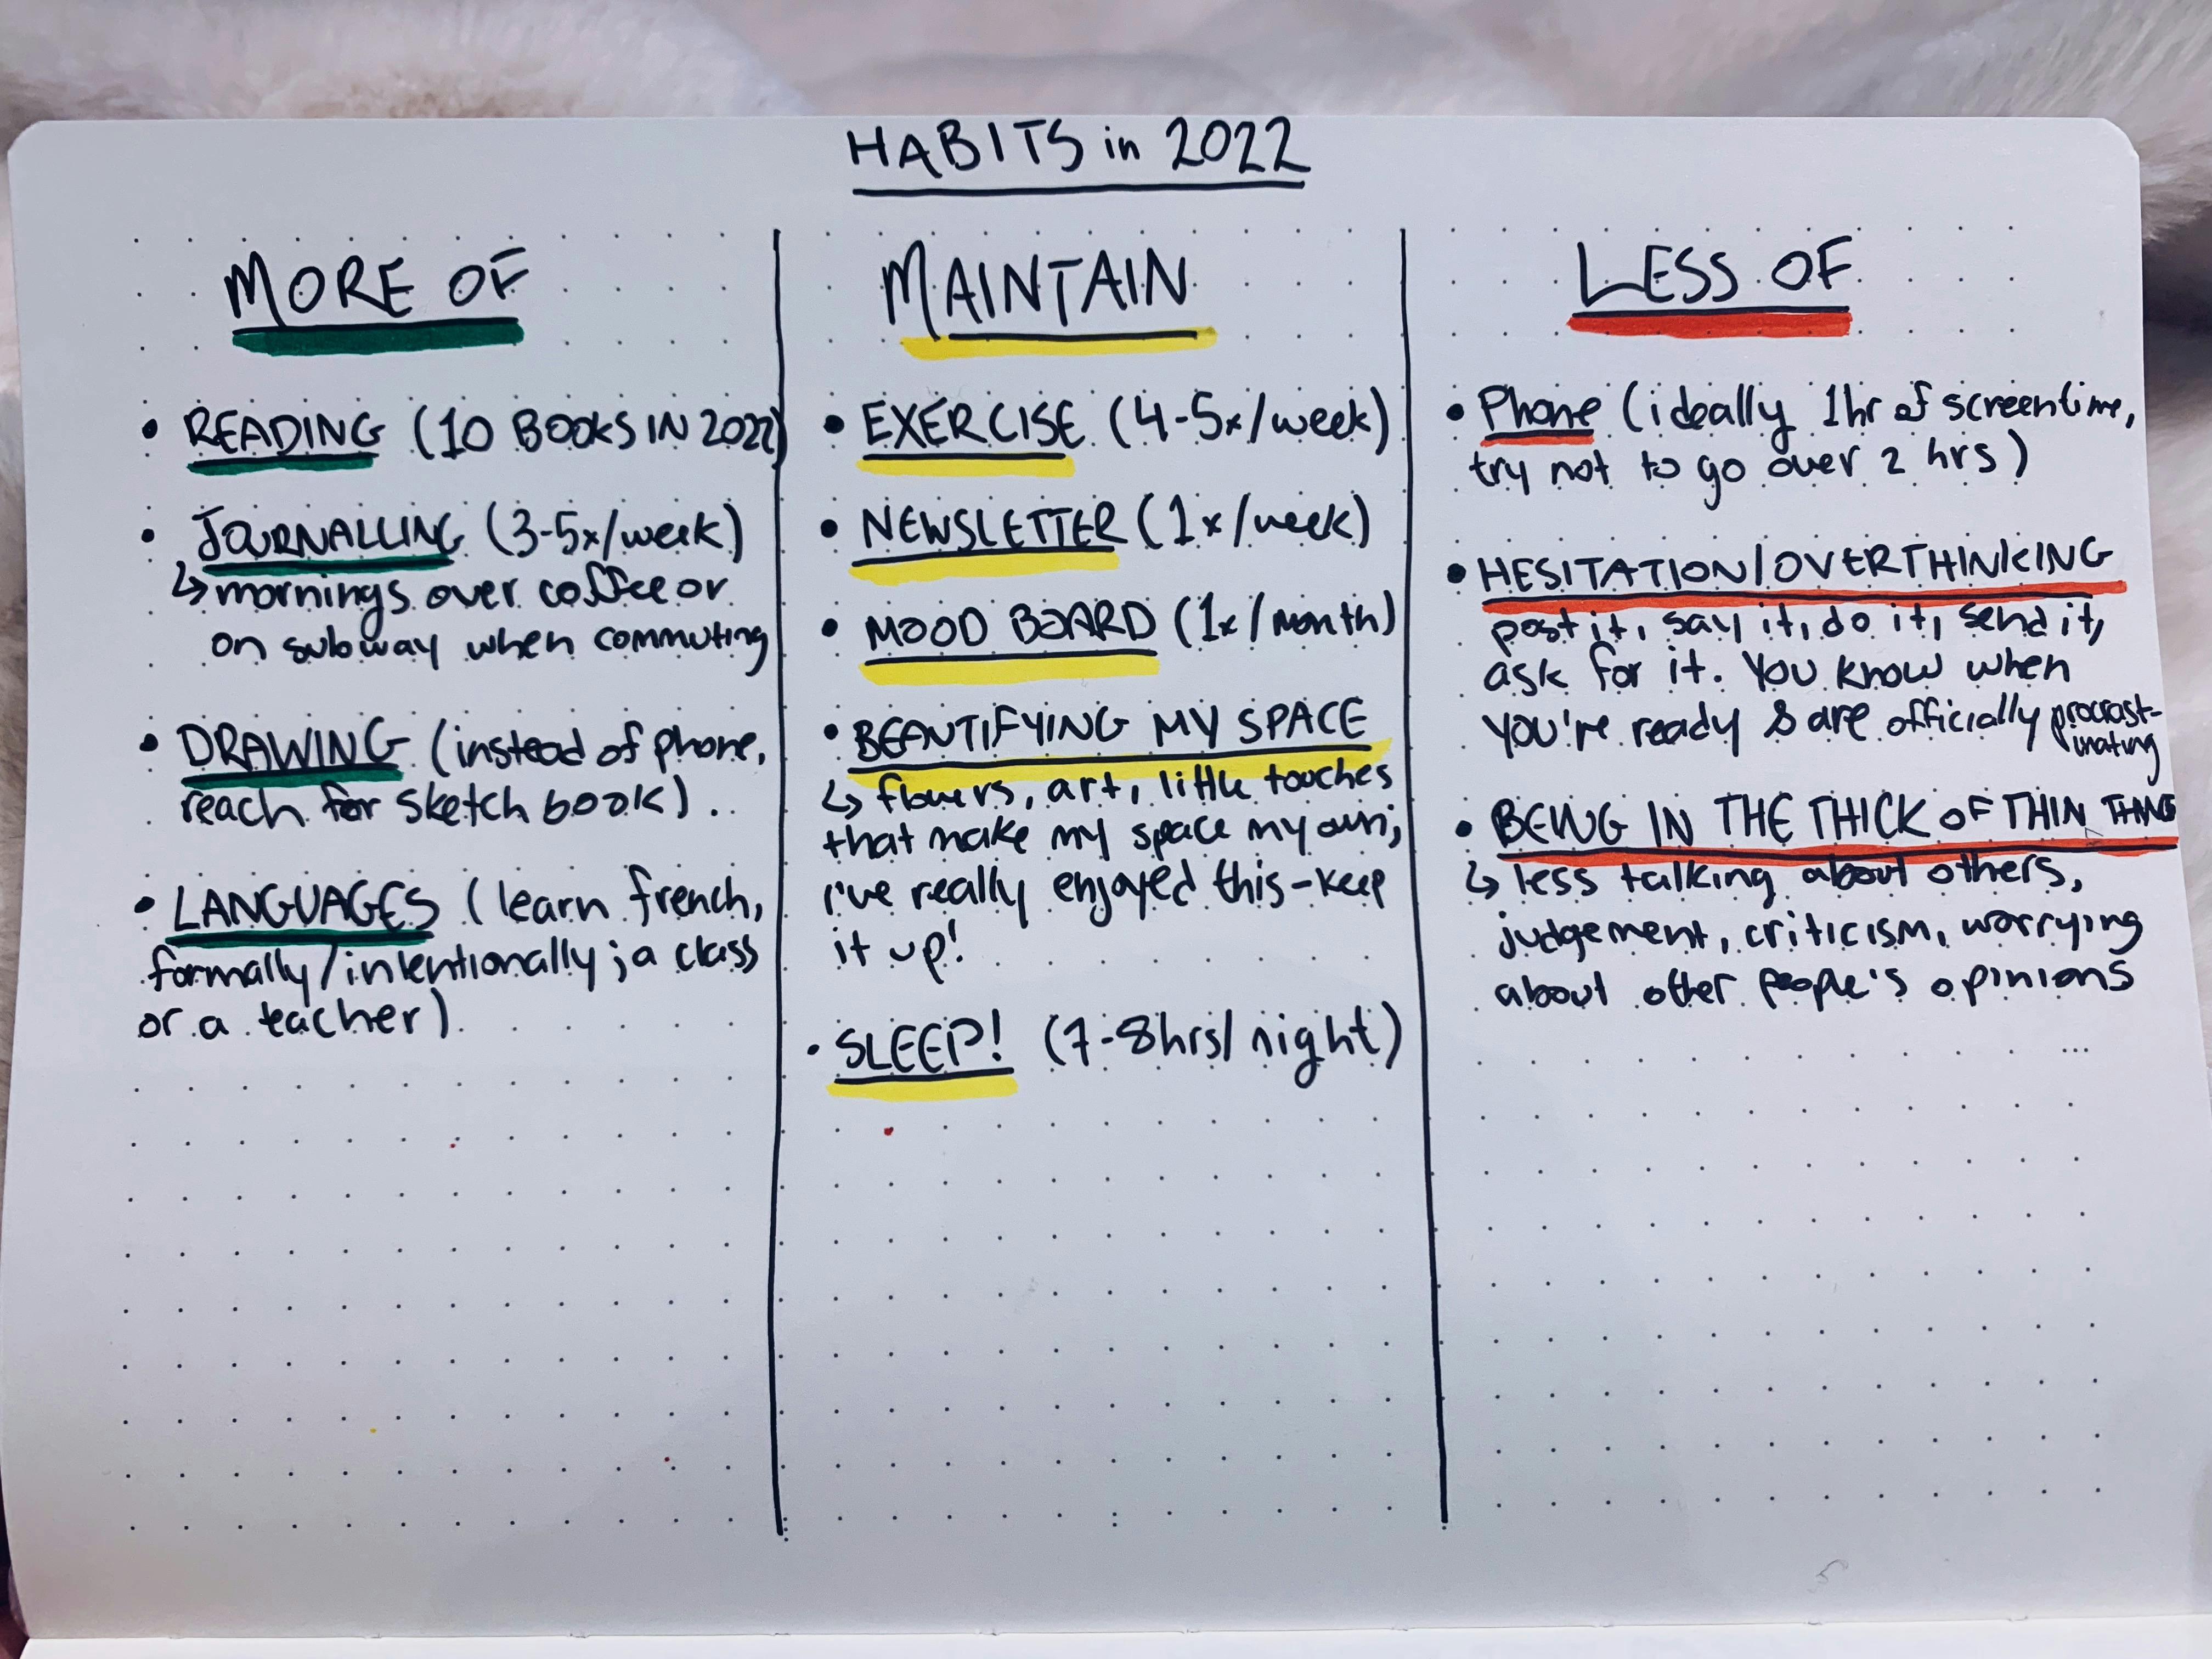 HABITS in 2022
MORE OF
• READING (10 BOOKS IN 2022)
• JOURNALLING (3-5x/week)
↳ mornings over coffee or
on subway when commuting
• DRAWING (instead of phone,
reach for sketch book)
• LANGUAGES (learn french,
formally/intentionally; a class
or a teacher)
MAINTAIN
• EXERCISE (4-5x/week)
• NEWSLETTER (1x/week)
• MOOD BOARD (1x/month)
• BEAUTIFYING MY SPACE
↳ flowers, art, little touches
that make my space my own;
i've really enjoyed this - keep
it up!
• SLEEP! (7-8hrs/night)
LESS OF
• Phone (ideally 1hr of screentime,
try not to go over 2 hrs)
• HESITATION/OVERTHINKING
post it, say it, do it, send it,
ask for it. You know when
you're ready & are officially procrast-
inating
• BEING IN THE THICK OF THIN THINGS
↳ less talking about others,
judgement, criticism, worrying
about other people's opinions